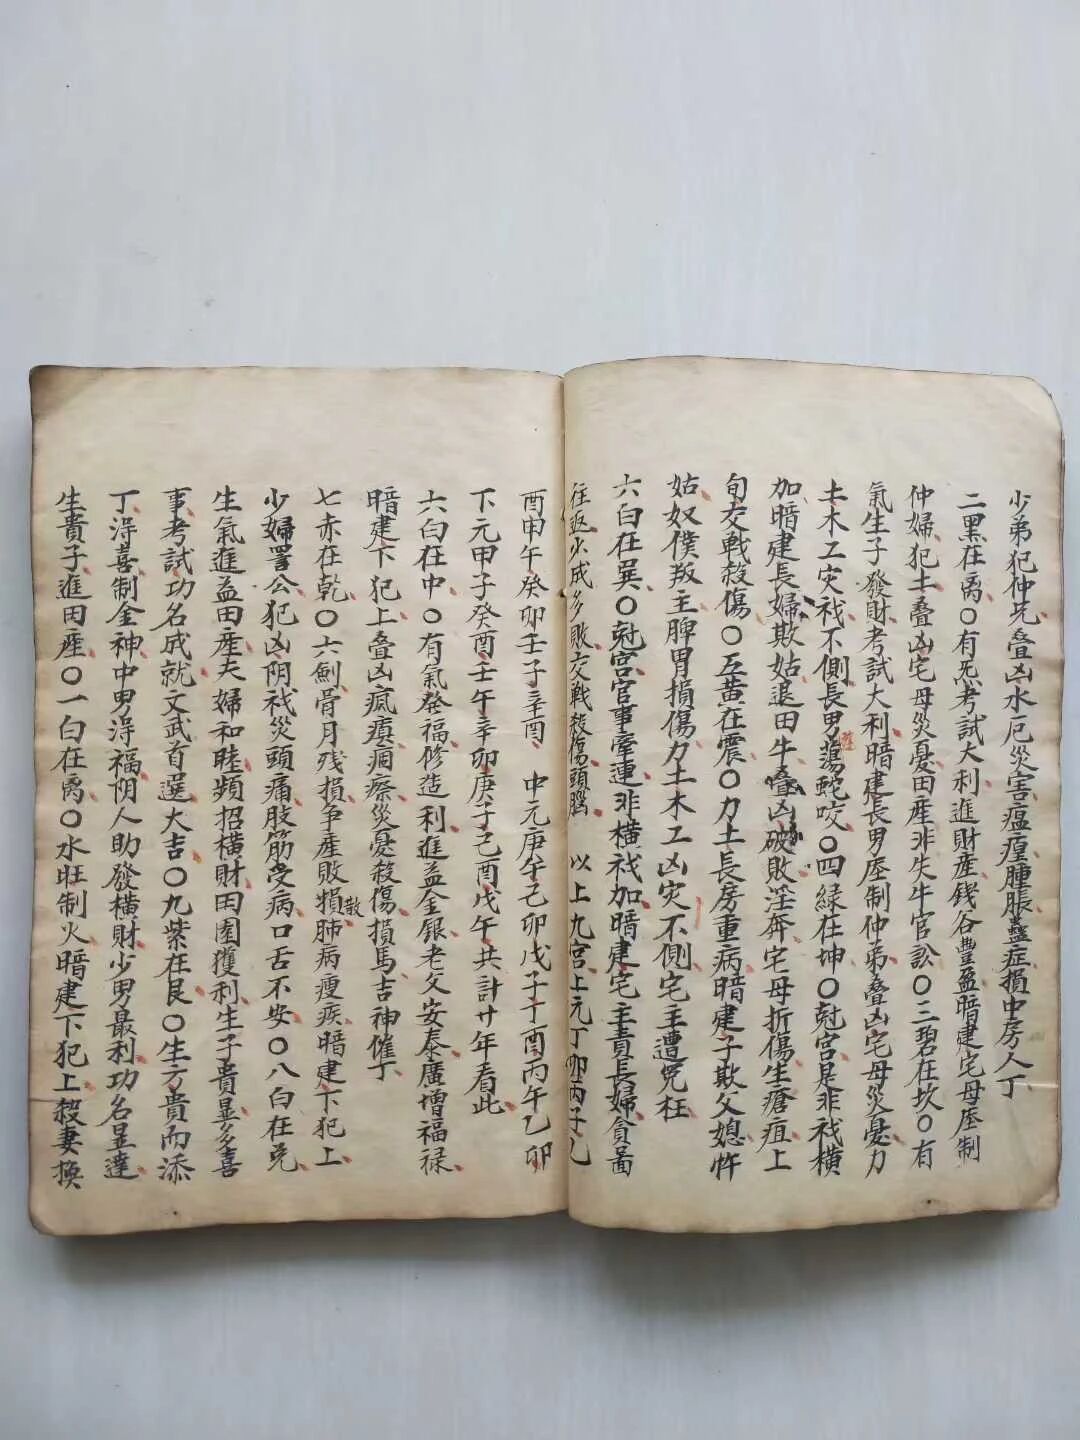 少弟犯仲兄叠凶水厄災害瘟瘟腫脹蠱症損中房人丁
二黑在离〇有炁考試大利進財産錢谷豐盈暗建宅母座制
仲婦犯土叠凶宅母災憂田産非失牛官訟〇三碧在坎〇有
氣生子發財考試大利暗建長男座制仲弟叠凶宅母災憂力
土木工灾祅不側長男蕩蛇咬〇四緑在坤〇尅宫是非祅横
加暗建長婦欺姑退田牛叠凶破敗淫奔宅母折傷生瘡疽上
旬交戰殺傷〇五黄在震〇力土長房重病暗建子欺父媳忤
姑奴僕叛主脾胃損傷力土木工凶灾不側宅主遭兇枉
六白在巽〇尅宫官事牽連非横祅加暗建宅主責長婦貪啚
往返少成多敗交戰殺傷頭腦 以上九宫上元丁卯丙子乙
酉甲午癸卯壬子辛酉 中元庚午己卯戊子丁酉丙午乙卯
下元甲子癸酉壬午辛卯庚子己酉戊午共計廿年看此
六白在中〇有氣發福修造利進益金銀老父安泰廣增福禄
暗建下犯上叠凶瘋癀痼瘵災憂殺傷損馬吉神催丁
七赤在乾〇六劍骨月残損争産敗損散肺病瘦疾暗建下犯上
少婦詈公犯凶阴祅災頭痛肢筋受病口舌不安〇八白在兑
生氣進益田産夫婦和睦頻招横財田園獲利生子貴显多喜
事考試功名成就文武首選大吉〇九紫在艮〇生方貴而添
丁浔喜制金神中男浔福阴人助發横財少男最利功名显達
生貴子進田産〇一白在离〇水旺制火暗建下犯上殺妻换